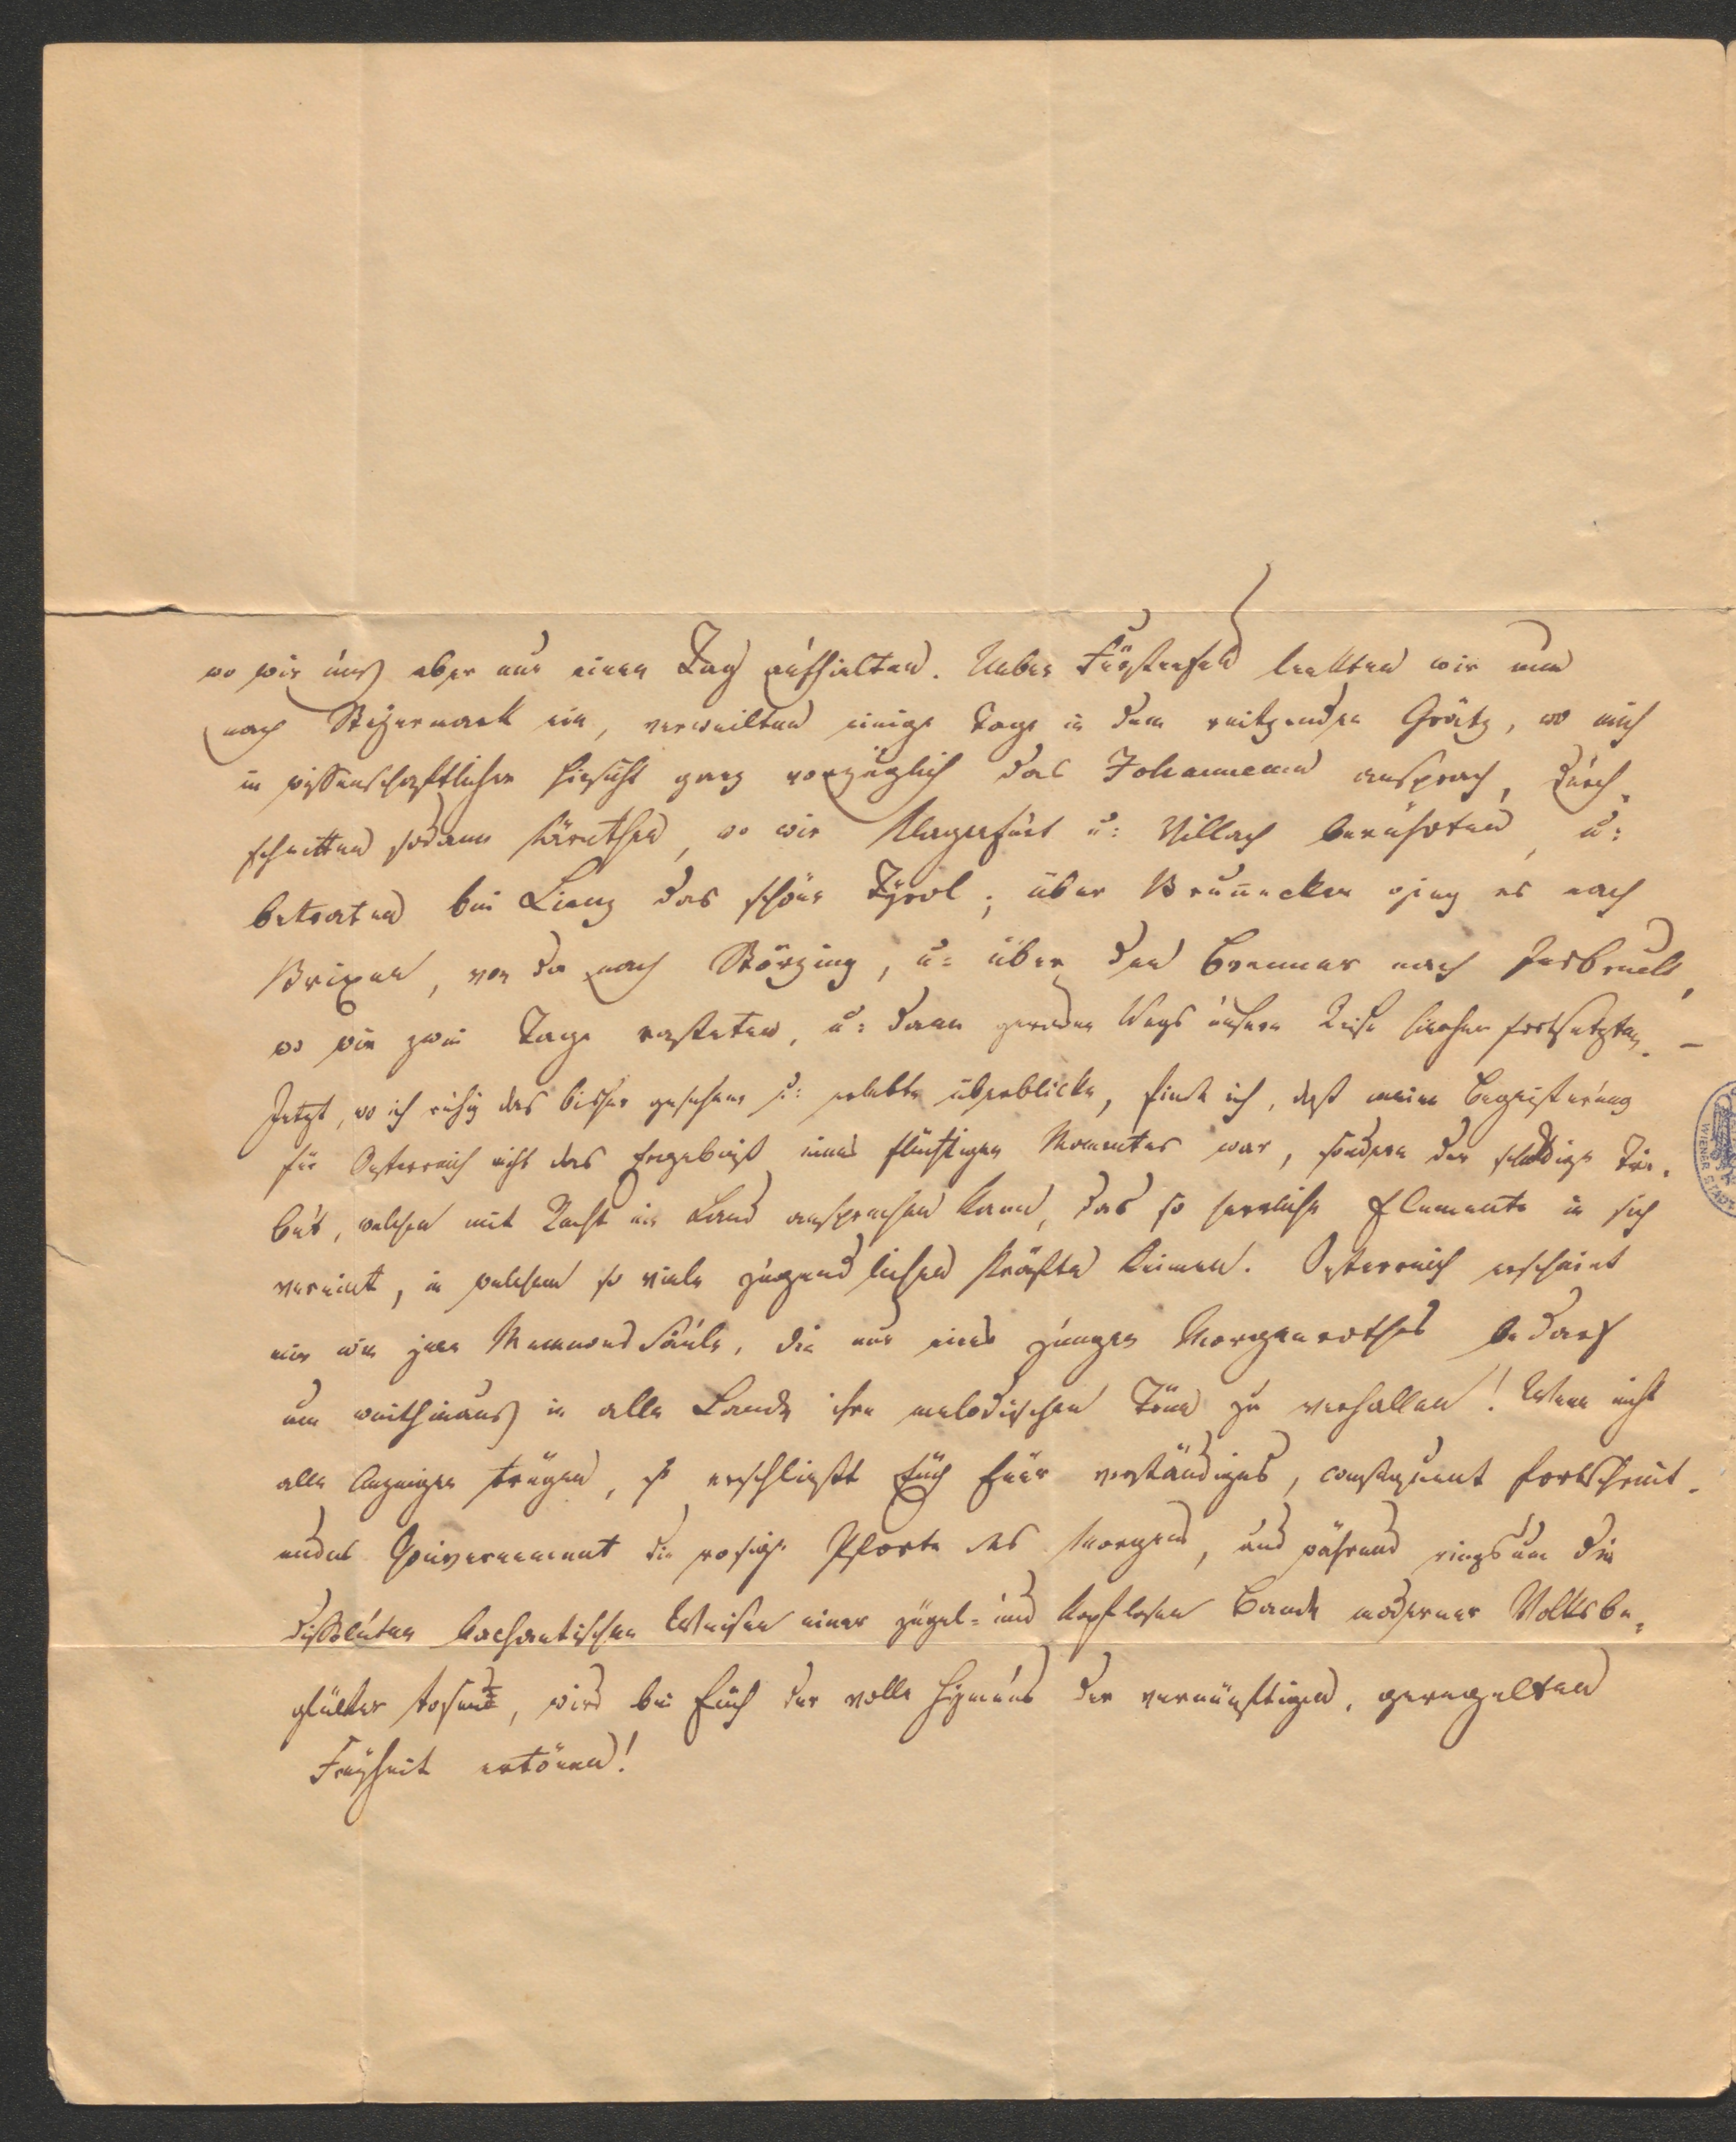 wo wir uns aber nur einen Tag aufhielten. Ueber Fürstenfeld lenkten wir nun
nach Steyermark ein, verweilten einige Tage in dem reitzenden Grätz, wo mich
in wissenschaftlicher Hinsicht ganz vorzüglich das Johanneum ansprach, durch-
schnitten sodann Kärnthen, wo wir Klagenfurt u: Villach berührten, u:
betraten bei Lienz das schöne Tyrol; über Brunnecken ging es nach
Brixen, von da nach Störzing, u: über den Brenner nach Insbruck,
wo wir zwei Tage rasteten, u: dann geraden Wegs unsere Reise hierher fortsetzten. –
Jetzt, wo ich ruhig das bisher gesehene u: erlebte überblicke, finde ich, daß meine Begeisterung
für Oesterreich nicht das Ergebniß eines flüchtigen Momentes war, sondern der schuldige Tri-
but, welchen mit Recht ein Land ansprechen kann, das so herrliche Elemente in sich
vereint, in welchem so viele jugendlichen Kräfte keimen. Oesterreich erscheint
mir wie jene Memnons Säule, die nur eines jungen Morgenrothes bedarf
um weithinaus in alle Lande ihre melodischen Töne zu verhallen! Wenn nicht
alle Anzeigen trügen, so erschließt Euch Euer verständiges, consequent fortschreit-
endes Gouvernement die rosige Pforte des Morgens, und während ringsum die
dissoluten bachantischen Weisen einer zügel- und kopflosen Bande moderner Volksbe-
glücker tosen, wird bei Euch der volle Hymnus der vernünftigen, geregelten
Freyheit ertönen!
WIENER STADT